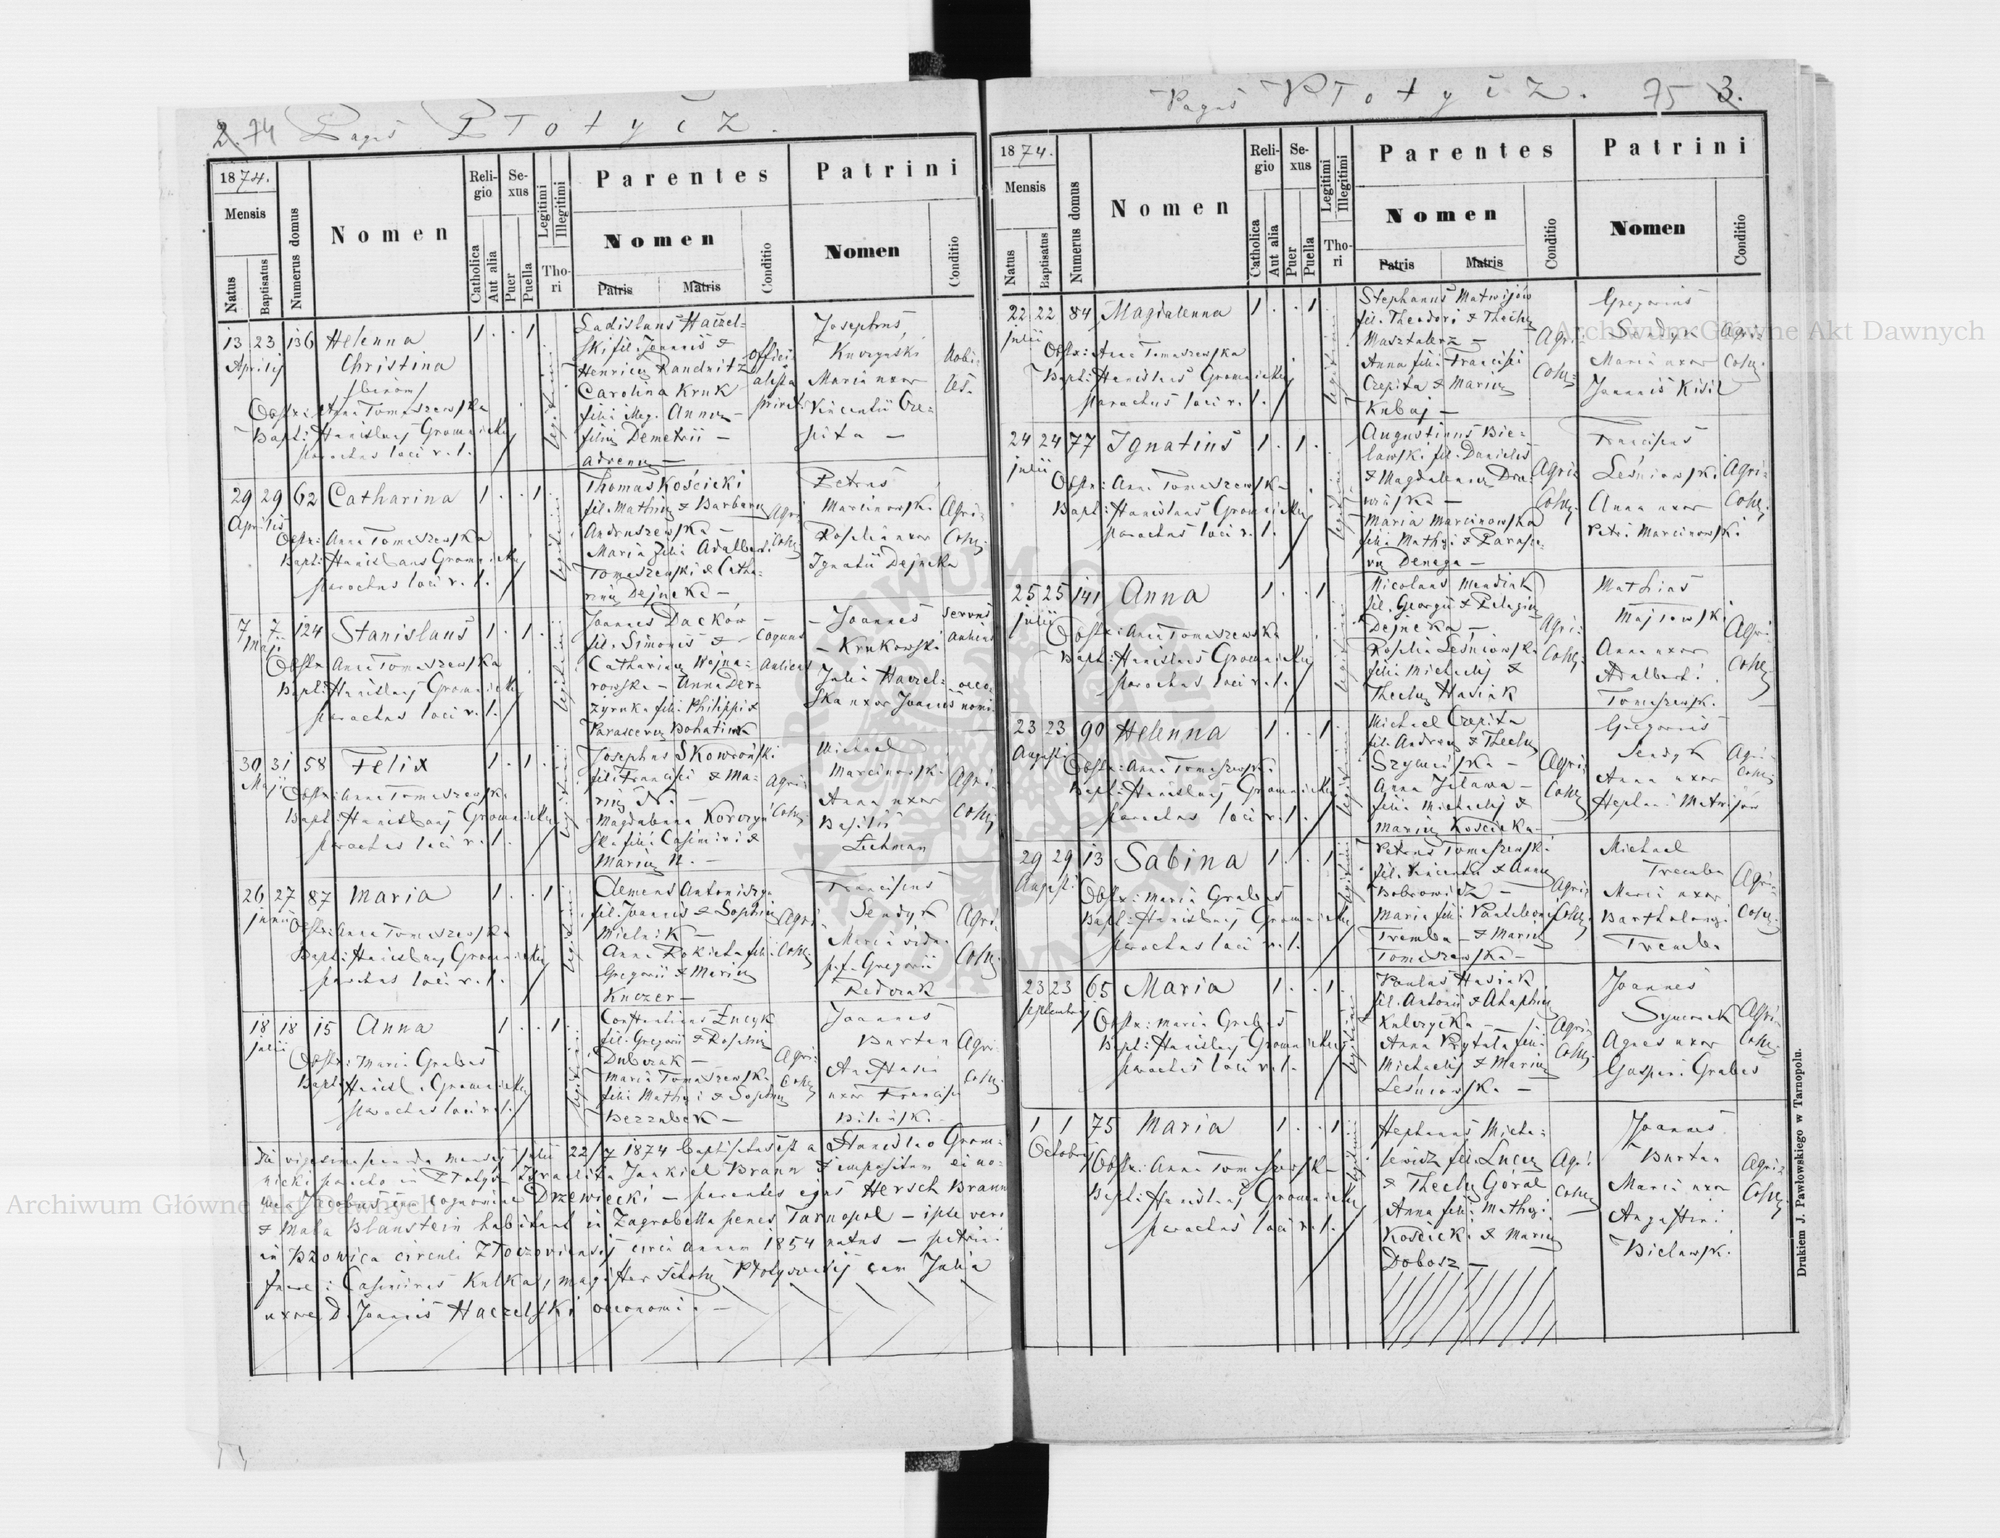 2. 74 Pagus Płotycz.
1874.
Mensis
Natus
Baptisatus
Numerus domus
Nomen
Religio
Catholica
Aut alia
Sexus
Puer
Puella
Legitimi
Illegitimi
Thori
Parentes
Nomen
Patris
Matris
Conditio
Patrini
Nomen
Conditio
13 23 136 Helenna 1 . . 1
Aprilis Christina
Obstx: Anna Tomaszewska
Bapt: Stanislaus Gromnicki
parochus loci r. l.
Ladislaus Haczel-
ski fil. Joannis &
Henricæ Raudnitz
Carolina Kruk
filia Anna
filia Demetrii —
Josephus
Maria uxor
Vincentii Cze-
pita —
29 29 62 Catharina 1 . . 1
Aprilis
Obstx: Anna Tomaszewska
Bapt: Stanislaus Gromnicki
parochus loci r. l.
Thomas Kościcki
fil. Mathiæ & Barbaræ
Andruszewska —
Maria filia Adalberti
Tomaszewski & Catha-
rinæ Dejneka —
Agri-
Colæ
Petrus
Marcinowski
Rosalia uxor
Ignatii Dejneka
Agri-
Colæ
7 7 124 Stanislaus 1 . 1 .
Maji
Obstx: Anna Tomaszewska
Bapt: Stanislaus Gromnicki
parochus loci r. l.
Joannes Dacków —
fil. Simonis &
Catharinæ Wojna-
rowska — Anna Der-
żyruka filia Philippi &
Parascevæ Bohatiuk
Coquus
Aulicus
Joannes
Krukowski
Julia Haczel-
ska uxor Joannis
servus
30 31 58 Felix 1 . 1 .
Maji
Obstx: Anna Tomaszewska
Bapt: Stanislaus Gromnicki
parochus loci r. l.
Josephus Skowroński
fil. Francisci & Ma-
riæ N. —
Magdalena Korczyń-
ska filia Casimiri &
Mariæ N. —
Agri-
Colæ
Michael
Marcinowski
Anna uxor
Basilii
Lichman
Agri-
Colæ
26 27 87 Maria 1 . . 1
junii
Obstx: Anna Tomaszewska
Bapt: Stanislaus Gromnicki
parochus loci r. l.
Clemens Antoniszyn
fil. Joannis & Sophiæ
Mielnik —
Anna Rokieta filia
Gregorii & Mariæ
Kuczer —
Agri-
Colæ
Franciscus
Sendyk
Maria vidua
p. f. Gregorii
Redczuk
Agri-
Colæ
18 18 15 Anna 1 . . 1
julii
Obstx: Maria Grabas
Bapt: Stanisl. Gromnicki
parochus loci r. l.
Constantinus Łucyk
fil. Gregorii & Rosaliæ
Dubczak —
Maria Tomaszewska
filia Mathiæ & Sophiæ
Bezzubek —
Agri-
Colæ
Joannes
Burtan
Anastasia
uxor Francisci
Biliński
Agri-
Colæ
Die vigesima secunda mensis julii 22/7 1874 baptisatus est a Stanislao Grom-
nicki parocho in Płotycz Izraelita Jankiel Braun & impositum ei no-
men Jacobus cum cognomine Drzewiecki — parentes ejus Hersch Braun
& Mala Blaustein habitant in Zagrobella penes Tarnopol — ipse vero
in Bzowica circuli Złoczoviensis circa annum 1854 natus — patrini
fuere: Casimirus Kulka, magister Scholæ Płotycensis cum Julia
uxore D. Joannis Haczelski oeconomi. —
Pagus Płotycz. 75 3.
1874.
Mensis
Natus
Baptisatus
Numerus domus
Nomen
Religio
Catholica
Aut alia
Sexus
Puer
Puella
Legitimi
Illegitimi
Thori
Parentes
Nomen
Patris
Matris
Conditio
Patrini
Nomen
Conditio
22 22 84 Magdalenna 1 . . 1
julii
Obstx: Anna Tomaszewska
Bapt: Stanislaus Gromnicki
parochus loci r. l.
Stephanus Matwijów
fil. Theodori & Theclæ
Masztalerz —
Anna filia Francisci
Czepita & Mariæ
Kubaj —
Agri-
Colæ
Gregorius
Sendyk
Maria uxor
Joannis Kisil
Agri-
Colæ
24 24 77 Ignatius 1 . 1 .
julii
Obstx: Anna Tomaszewska
Bapt: Stanislaus Gromnicki
parochus loci r. l.
Augustinus Bie-
lawski fil. Danielis
& Magdalenæ
Maria Marcinowska
filia Mathiæ & Parasce-
væ Denega —
Agri-
Colæ
Franciscus
Leśniowski
Anna uxor
Petri Marcinowski
Agri-
Colæ
25 25 141 Anna 1 . . 1
julii
Obstx: Anna Tomaszewska
Bapt: Stanislaus Gromnicki
parochus loci r. l.
Nicolaus Mendiuk
fil. Georgii & Pelagiæ
Dejneka —
Rosalia Leśniowska
filia Michaelis &
Theclæ Hasiak
Agri-
Colæ
Mathias
Majowski
Anna uxor
Adalberti
Tomaszewski
Agri-
Colæ
23 23 90 Helenna 1 . . 1
Augusti
Obstx: Anna Tomaszewska
Bapt: Stanislaus Gromnicki
parochus loci r. l.
Michael Czepita
fil. Andreæ & Theclæ
Szymańska —
Anna Zelawa —
filia Michaelis &
Mariæ Kościcka —
Agri-
Colæ
Gregorius
Sendyk
Anna uxor
Stephani Matwijów
Agri-
Colæ
29 29 13 Sabina 1 . . 1
Augusti
Obstx: Maria Grabas
Bapt: Stanislaus Gromnicki
parochus loci r. l.
Petrus Tomaszewski
fil. Vincentii & Annæ
Bobrowicz —
Maria filia Panteleonis
Tremba — & Mariæ
Tomaszewska —
Agri-
Colæ
Michael
Tremba
Maria uxor
Bartholomæi
Tremba
Agri-
Colæ
23 23 65 Maria 1 . . 1
Septembris
Obstx: Maria Grabas
Bapt: Stanislaus Gromnicki
parochus loci r. l.
Paulus Hasiak
fil. Antonii & Ahaphiæ
Kulczycka
Anna Prytuła filia
Michaelis & Mariæ
Leśniowska —
Agri-
Colæ
Joannes
Szymczak
Agnes uxor
Gaspari Grabas
Agri-
Colæ
1 1 75 Maria 1 . . 1
Octobris
Obstx: Anna Tomaszewska
Bapt: Stanislaus Gromnicki
parochus loci r. l.
Stephanus Micha-
lewicz fil. Lucæ
& Theclæ Góral
Anna filia Mathiæ
Kościcki & Mariæ
Dobosz —
Agri-
Colæ
Joannes
Burtan
Maria uxor
Augustini
Bielawski
Agri-
Colæ
Drukiem J. Pawłowskiego w Tarnopolu.
Archiwum Główne Akt Dawnych
Archiwum Główne Akt Dawnych
ARCHIWUM GŁÓWNE AKT DAWNYCH